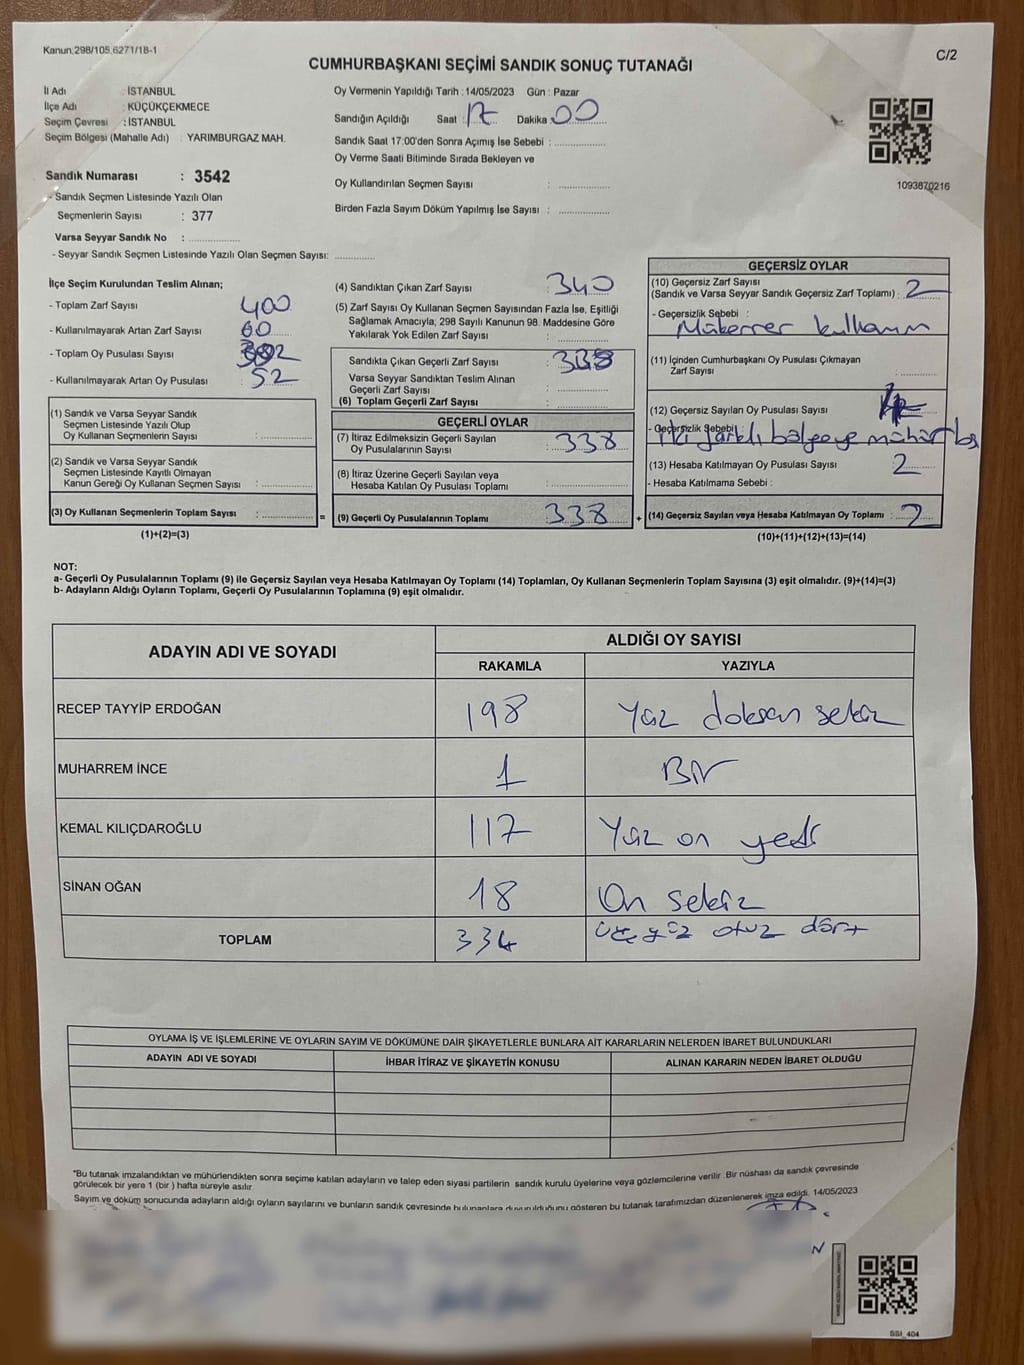 Kanun;298/105,6271/18-1
C/2
CUMHURBAŞKANI SEÇİMİ SANDIK SONUÇ TUTANAĞI
İl Adı : İSTANBUL
İlçe Adı : KÜÇÜKÇEKMECE
Seçim Çevresi : İSTANBUL
Seçim Bölgesi (Mahalle Adı) : YARIMBURGAZ MAH.
Sandık Numarası : 3542
- Sandık Seçmen Listesinde Yazılı Olan
Seçmenlerin Sayısı : 377
Varsa Seyyar Sandık No :
- Seyyar Sandık Seçmen Listesinde Yazılı Olan Seçmen Sayısı:
Oy Vermenin Yapıldığı Tarih : 14/05/2023 Gün : Pazar
Sandığın Açıldığı Saat : 17 Dakika : 00
Sandık Saat 17:00'den Sonra Açımış İse Sebebi :
Oy Verme Saati Bitiminde Sırada Bekleyen ve
Oy Kullandırılan Seçmen Sayısı :
Birden Fazla Sayım Döküm Yapılmış İse Sayısı :
1093670216
İlçe Seçim Kurulundan Teslim Alınan;
- Toplam Zarf Sayısı : 400
- Kullanılmayarak Artan Zarf Sayısı : 60
- Toplam Oy Pusulası Sayısı :
- Kullanılmayarak Artan Oy Pusulası : 52
(1) Sandık ve Varsa Seyyar Sandık
Seçmen Listesinde Yazılı Olup
Oy Kullanan Seçmenlerin Sayısı :
(2) Sandık ve Varsa Seyyar Sandık
Seçmen Listesinde Kayıtlı Olmayan
Kanun Gereği Oy Kullanan Seçmen Sayısı :
(3) Oy Kullanan Seçmenlerin Toplam Sayısı : =
(1)+(2)=(3)
(4) Sandıktan Çıkan Zarf Sayısı : 340
(5) Zarf Sayısı Oy Kullanan Seçmen Sayısından Fazla İse, Eşitliği
Sağlamak Amacıyla; 298 Sayılı Kanunun 98. Maddesine Göre
Yakılarak Yok Edilen Zarf Sayısı :
Sandıkta Çıkan Geçerli Zarf Sayısı : 338
Varsa Seyyar Sandıktan Teslim Alınan
Geçerli Zarf Sayısı :
(6) Toplam Geçerli Zarf Sayısı :
GEÇERLİ OYLAR
(7) İtiraz Edilmeksizin Geçerli Sayılan
Oy Pusulalarının Sayısı : 338
(8) İtiraz Üzerine Geçerli Sayılan veya
Hesaba Katılan Oy Pusulası Toplamı :
(9) Geçerli Oy Pusulalarının Toplamı : 338 +
GEÇERSİZ OYLAR
(10) Geçersiz Zarf Sayısı
(Sandık ve Varsa Seyyar Sandık Geçersiz Zarf Toplamı) : 2
- Geçersizlik Sebebi :
Mükerrer kullanım
(11) İçinden Cumhurbaşkanı Oy Pusulası Çıkmayan
Zarf Sayısı :
(12) Geçersiz Sayılan Oy Pusulası Sayısı :
- Geçersizlik Sebebi :
iki farklı bölgeye mühür
(13) Hesaba Katılmayan Oy Pusulası Sayısı : 2
- Hesaba Katılmama Sebebi :
(14) Geçersiz Sayılan veya Hesaba Katılmayan Oy Toplamı : 2
(10)+(11)+(12)+(13)=(14)
NOT:
a- Geçerli Oy Pusulalarının Toplamı (9) ile Geçersiz Sayılan veya Hesaba Katılmayan Oy Toplamı (14) Toplamları, Oy Kullanan Seçmenlerin Toplam Sayısına (3) eşit olmalıdır. (9)+(14)=(3)
b- Adayların Aldığı Oyların Toplamı, Geçerli Oy Pusulalarının Toplamına (9) eşit olmalıdır.
ADAYIN ADI VE SOYADI
ALDIĞI OY SAYISI
RAKAMLA YAZIYLA
RECEP TAYYİP ERDOĞAN 198 Yüz doksan sekiz
MUHARREM İNCE 1 Bir
KEMAL KILIÇDAROĞLU 117 Yüz on yedi
SİNAN OĞAN 18 On sekiz
TOPLAM 334 üçyüz otuz dört
OYLAMA İŞ VE İŞLEMLERİNE VE OYLARIN SAYIM VE DÖKÜMÜNE DAİR ŞİKAYETLERLE BUNLARA AİT KARARLARIN NELERDEN İBARET BULUNDUKLARI
ADAYIN ADI VE SOYADI İHBAR İTİRAZ VE ŞİKAYETİN KONUSU ALINAN KARARIN NEDEN İBARET OLDUĞU
"Bu tutanak imzalandıktan ve mühürlendikten sonra seçime katılan adayların ve talep eden siyasi partilerin sandık kurulu üyelerine veya gözlemcilerine verilir. Bir nüshası da sandık çevresinde
görülecek bir yere 1 (bir ) hafta süreyle asılır.
Sayım ve döküm sonucunda adayların aldığı oyların sayılarını ve bunların sandık çevresinde bulunanlara duyurulduğunu gösteren bu tutanak tarafımızdan düzenlenerek imza edildi. 14/05/2023
N
SSI_404